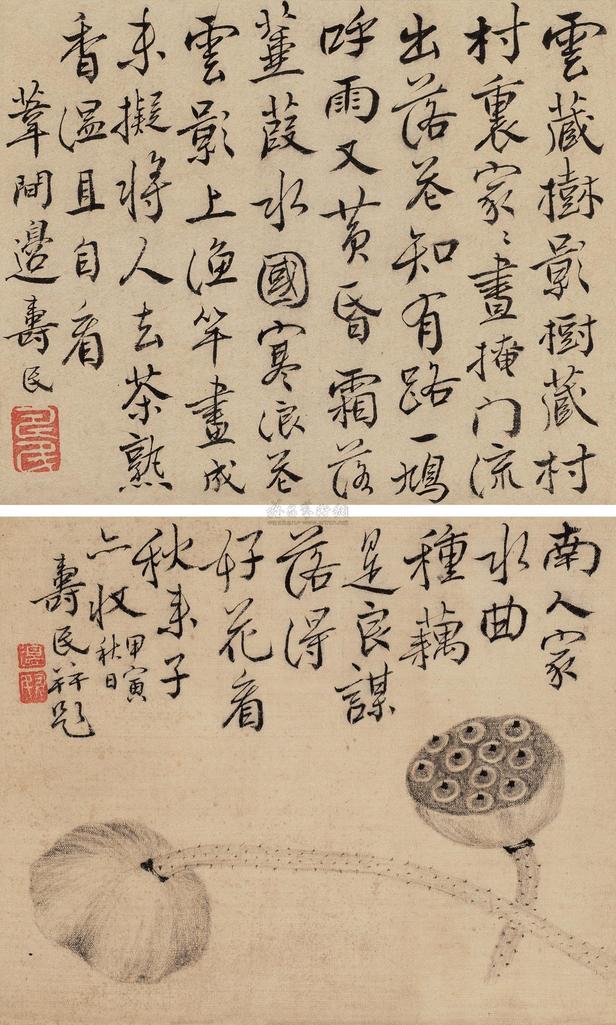 雲藏樹影樹藏村
村裏家〻晝掩门流
出落花知有路一鳩
呼雨又黄昏霜落
蒹葭水國寒浪花
雲影上渔竿畫成
未擬将人去茶熟
香温且自看
葦間邊壽民
南人家
水曲
種藕
是良謀
落得
好花看
秋来子
亦收
甲寅
秋日
壽民并题